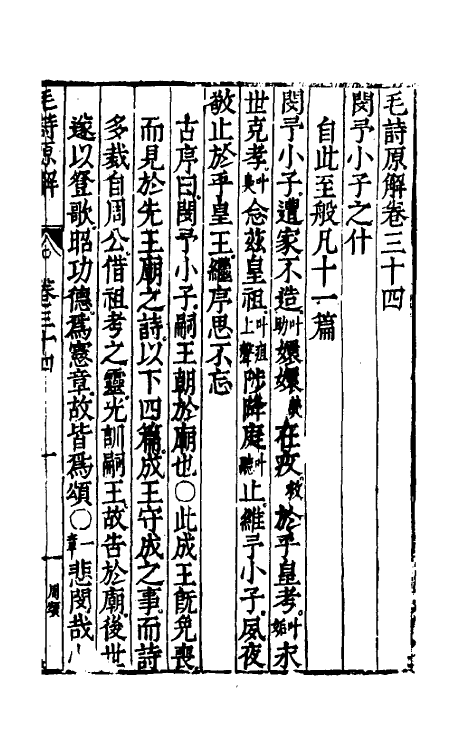 毛詩原解卷三十四
閔予小子之什
自此至般凡十一篇
閔予小子遭家不造叶助嬛嬛在疚於乎皇考叶永
世克孝叶念茲皇祖叶上聲陟降庭叶聽止維予小子夙夜
敬止於乎皇王繼序思不忘
古序曰閔予小子嗣王朝於廟也○此成王旣免喪
而見於先王廟之詩以下四篇成王守成之事而詩
多裁自周公借祖考之靈光訓嗣王故告於廟後世
遂以登歌昭功德爲憲章故皆爲頌○一章悲閔哉
毛詩原解 卷三十四 一 周頌